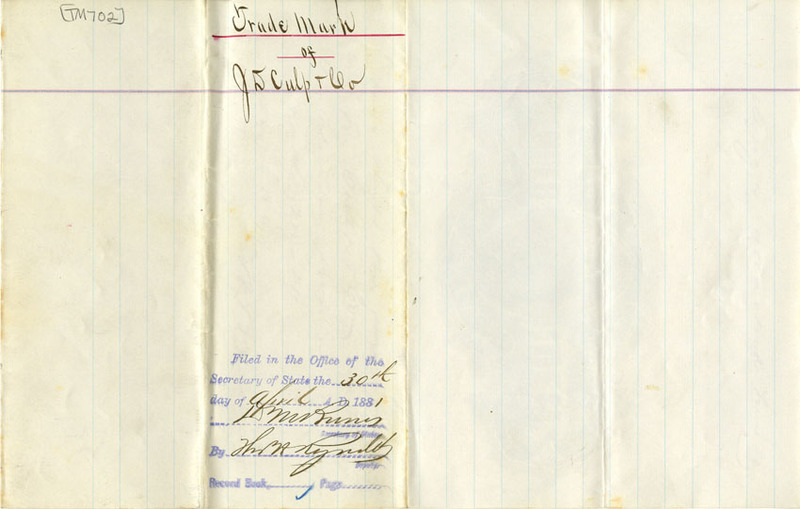 [TM702]
Trade Mark
of
J D Culp & Co
Filed in the Office of the
Secretary of State the 30th
day of April A.D. 1881
Secretary of State
By Thos H Reynolds
Deputy
Record Book Page